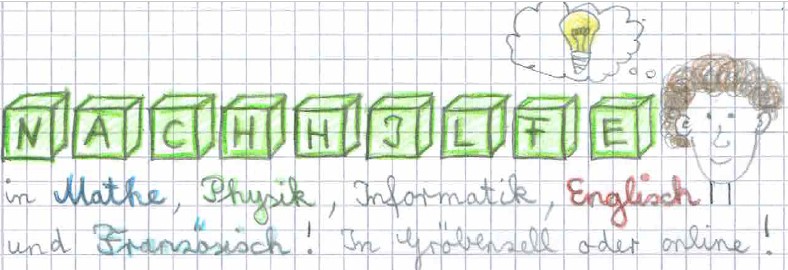 NACHHILFE
in Mathe, Physik, Informatik, Englisch
und Französisch! In Gröbenzell oder online!